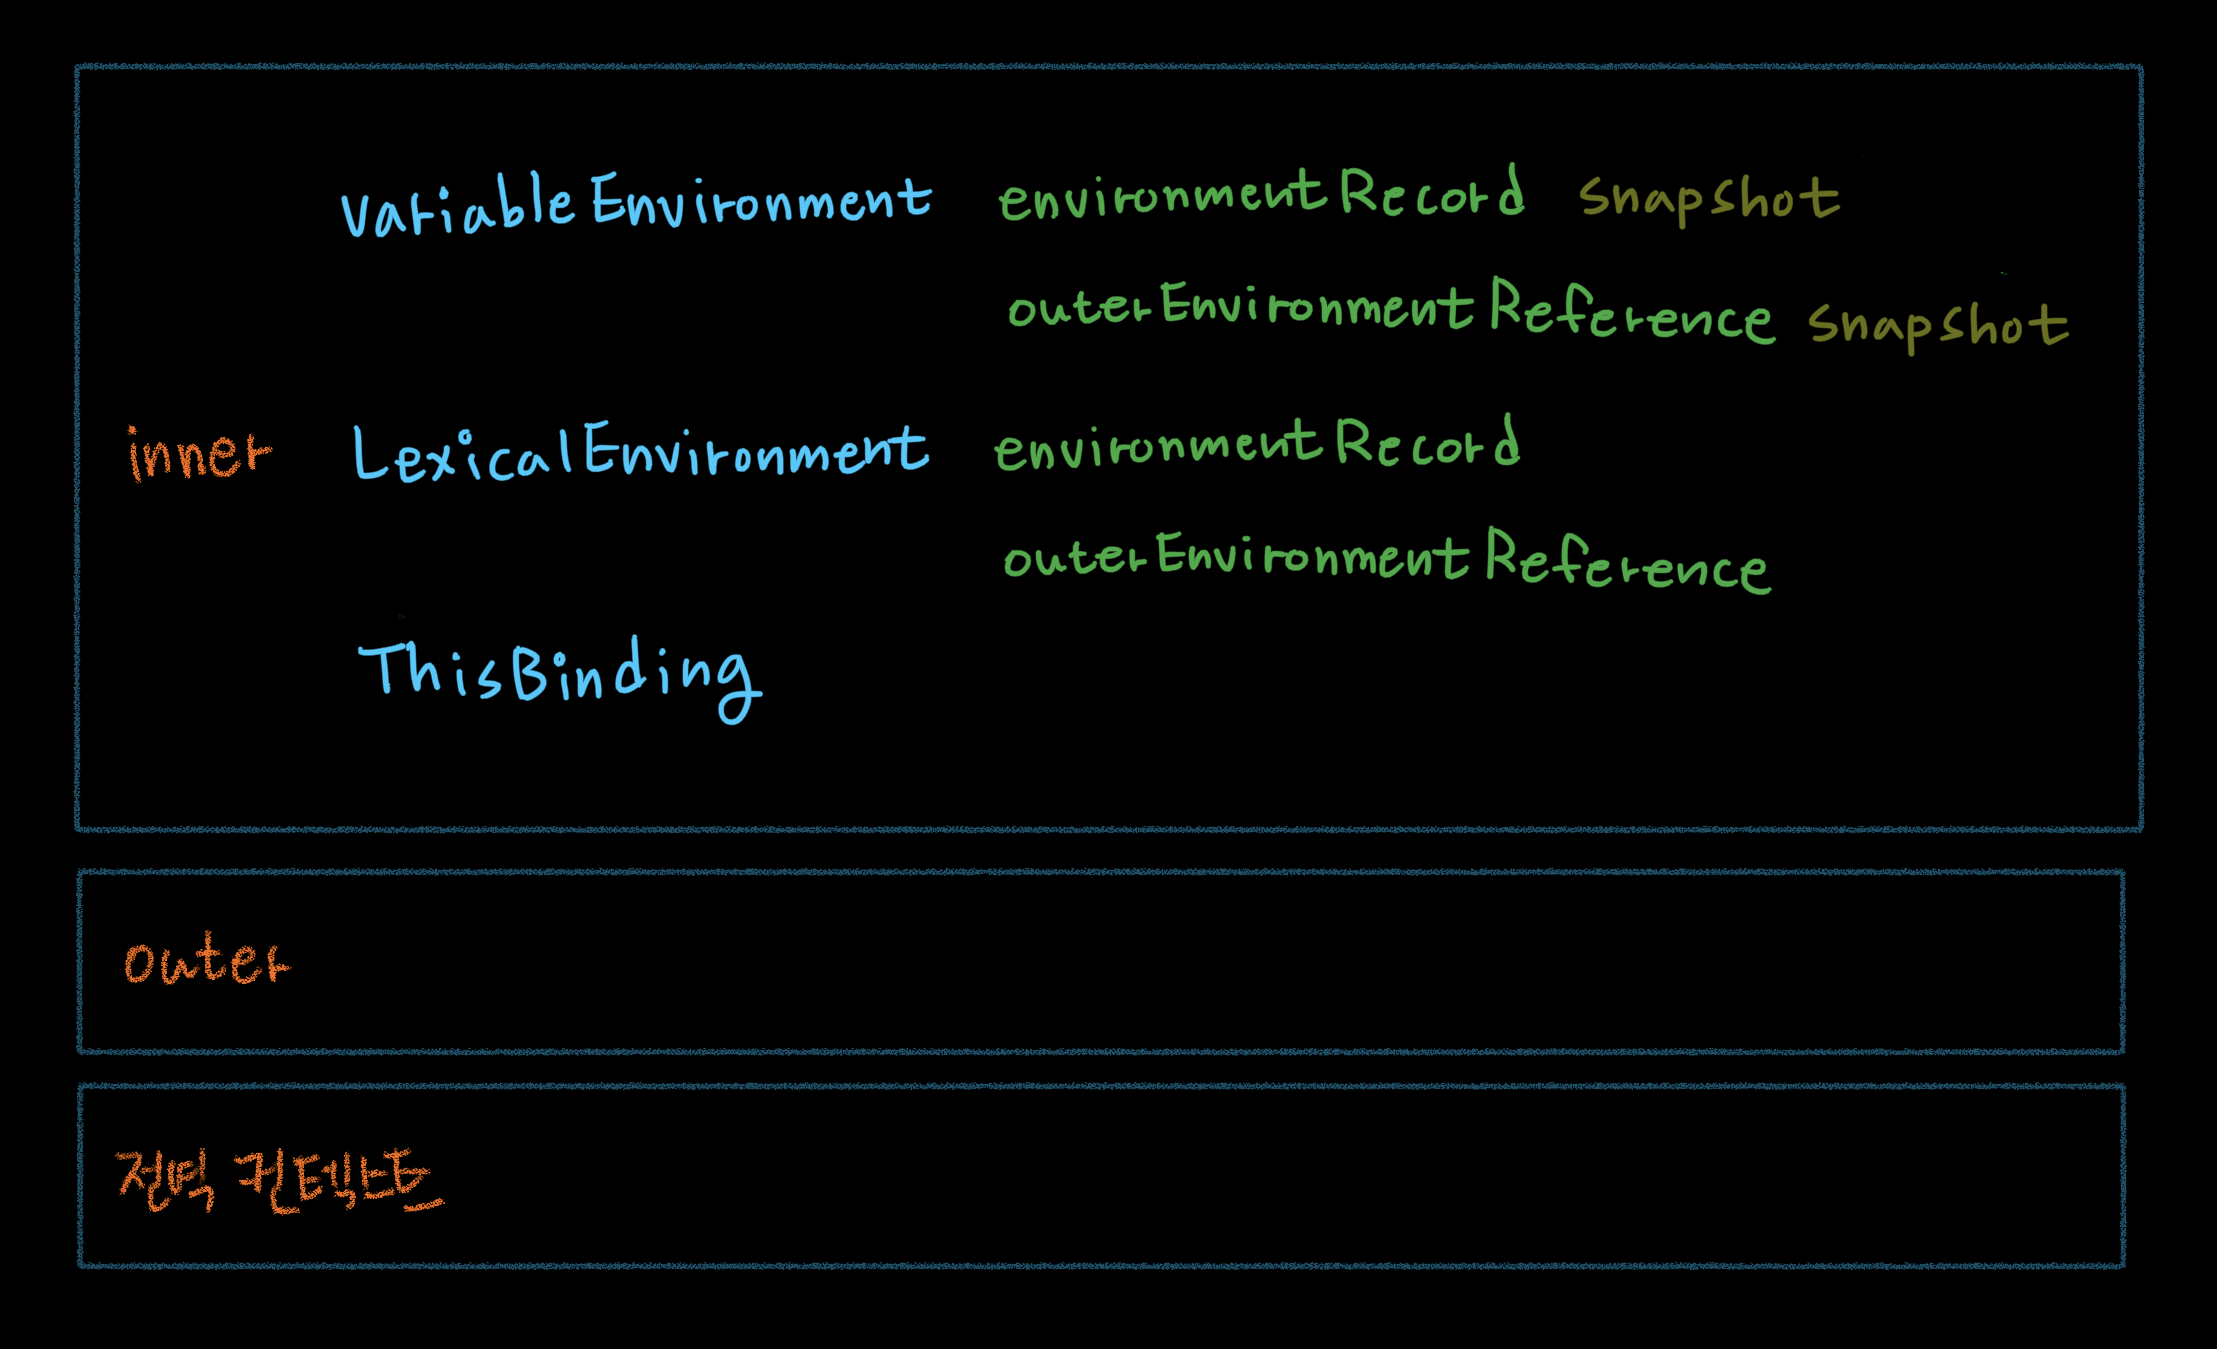 VariableEnvironment environmentRecord snapshot
outerEnvironmentReference snapshot
inner LexicalEnvironment environmentRecord
outerEnvironmentReference
ThisBinding
outer
전역 컨텍스트